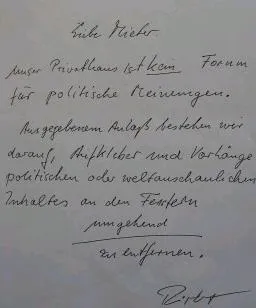 Liebe Mieter
unser Privathaus ist kein Forum
für politische Meinungen.
Aus gegebenem Anlaß bestehen wir
darauf, Aufkleber und Vorhänge
politischen oder weltanschaulichen
Inhaltes an den Fenstern
umgehend
zu entfernen.